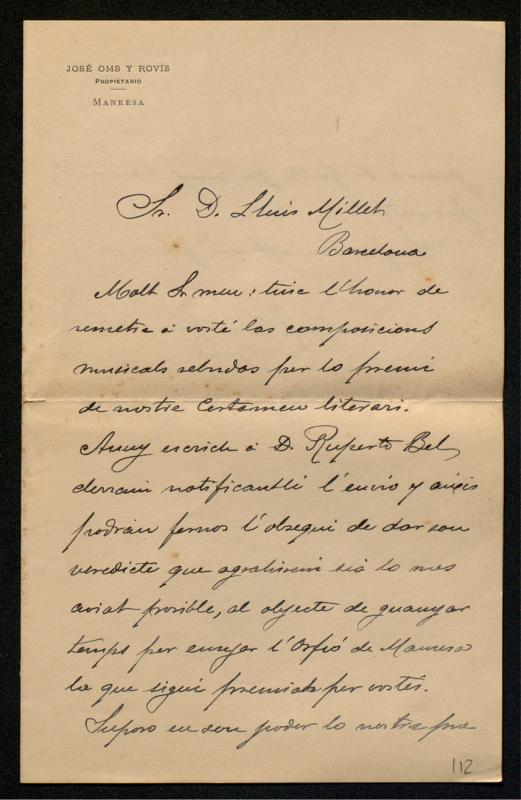 JOSÉ OMS Y ROVÍS
PROPIETARIO
MANRESA
Sr. D. Lluis Millet
Barcelona
Molt Sr. meu: tinc l'honor de
remetre á vosté las composicions
musicals rebudas per lo premi
de nostre Certamen literari.
Avuy escrich á D. Ruperto Bel
derrain notificantli l'envio y aixis
podrán fernos l'obsequi de dar son
veredicte que agrahirem siá lo mes
aviat posible, al objecte de guanyar
temps per ensejar l'Orfió de Manresa
la que sigui premiada per vostés.
Suposo en son poder lo nostre pro
112